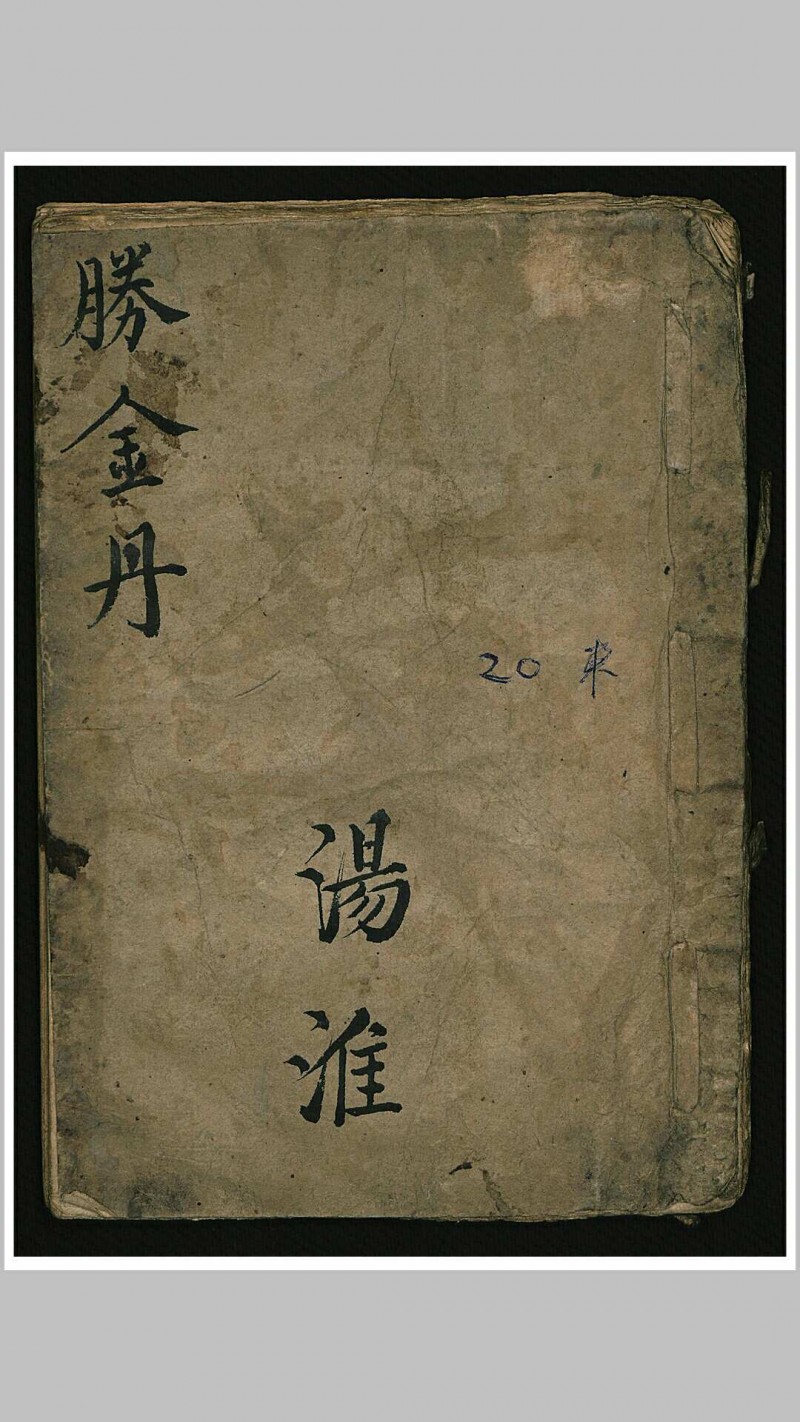 勝金丹
20
湯淮